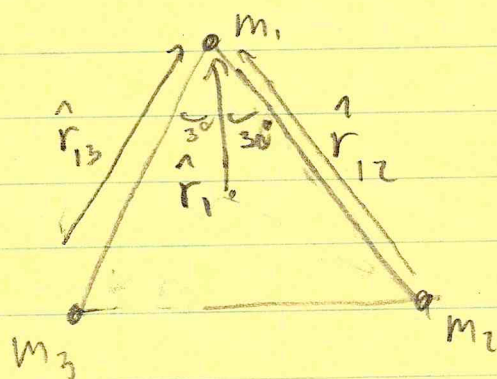 m₁
r̂₁₃
30°
30°
r̂₁
r̂₁₂
m₃
m₂